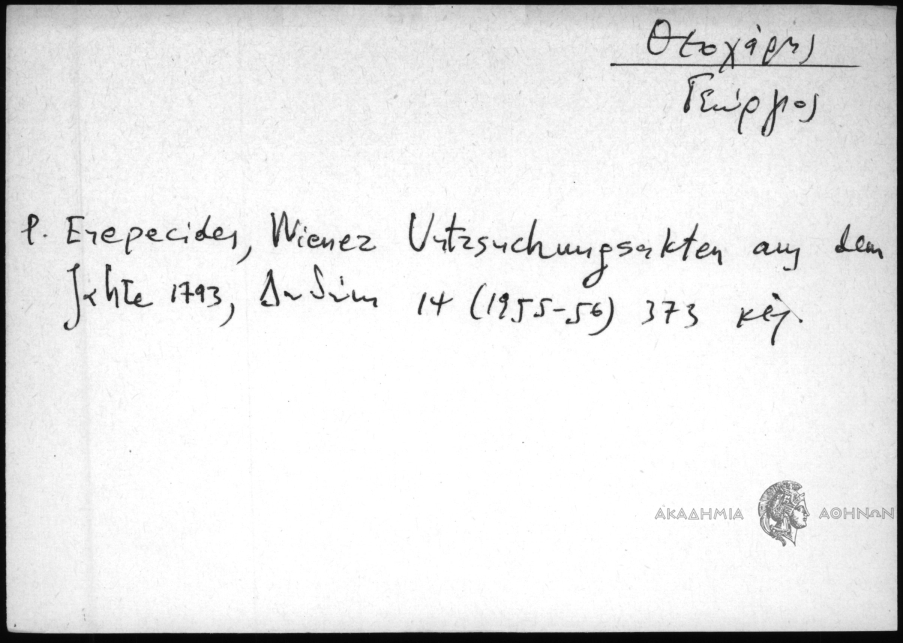 Θεοχάρης
Γεώργιος
P. Enepecides, Wiener Untersuchungsakten aus dem
Jahre 1793, 14 (1955-56) 373 κἑξ.
ΑΚΑΔΗΜΙΑ ΑΘΗΝΩΝ